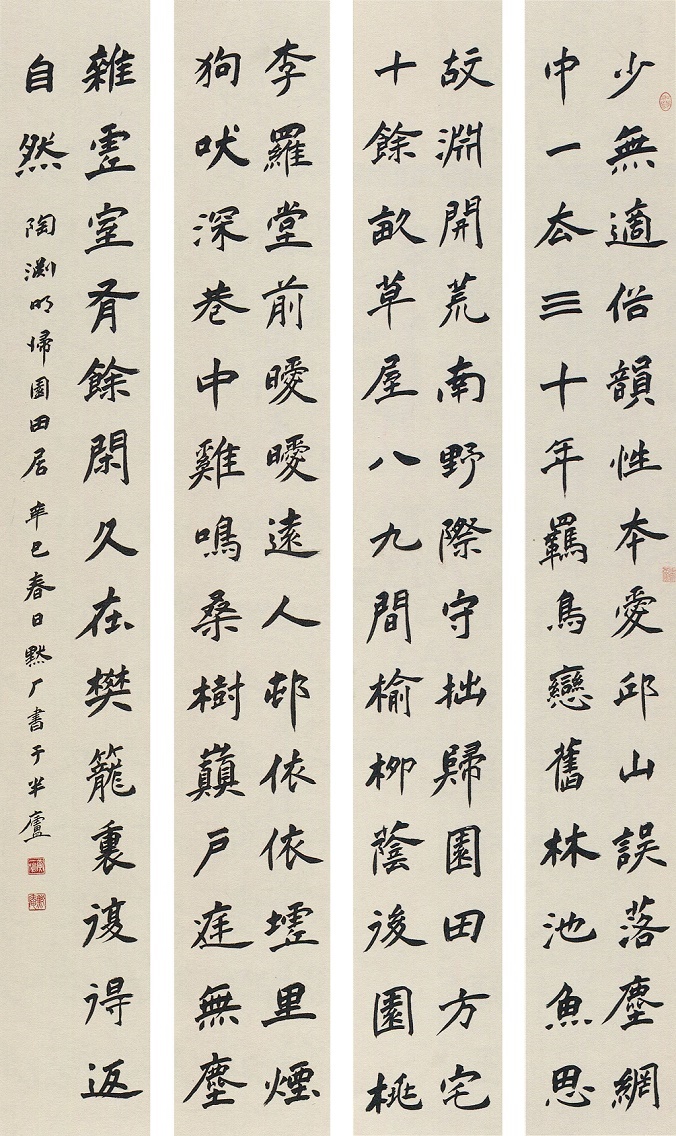 少無適俗韻性本愛邱山誤落塵網
中一去三十年羈鳥戀舊林池魚思
故淵開荒南野際守拙歸園田方宅
十餘畝草屋八九間榆柳蔭後園桃
李羅堂前曖曖遠人邨依依墟里煙
狗吠深巷中雞鳴桑樹巔戶庭無塵
雜虛室有餘閑久在樊籠裏復得返
自然 陶淵明歸園田居 辛巳春日黙厂書于半廬